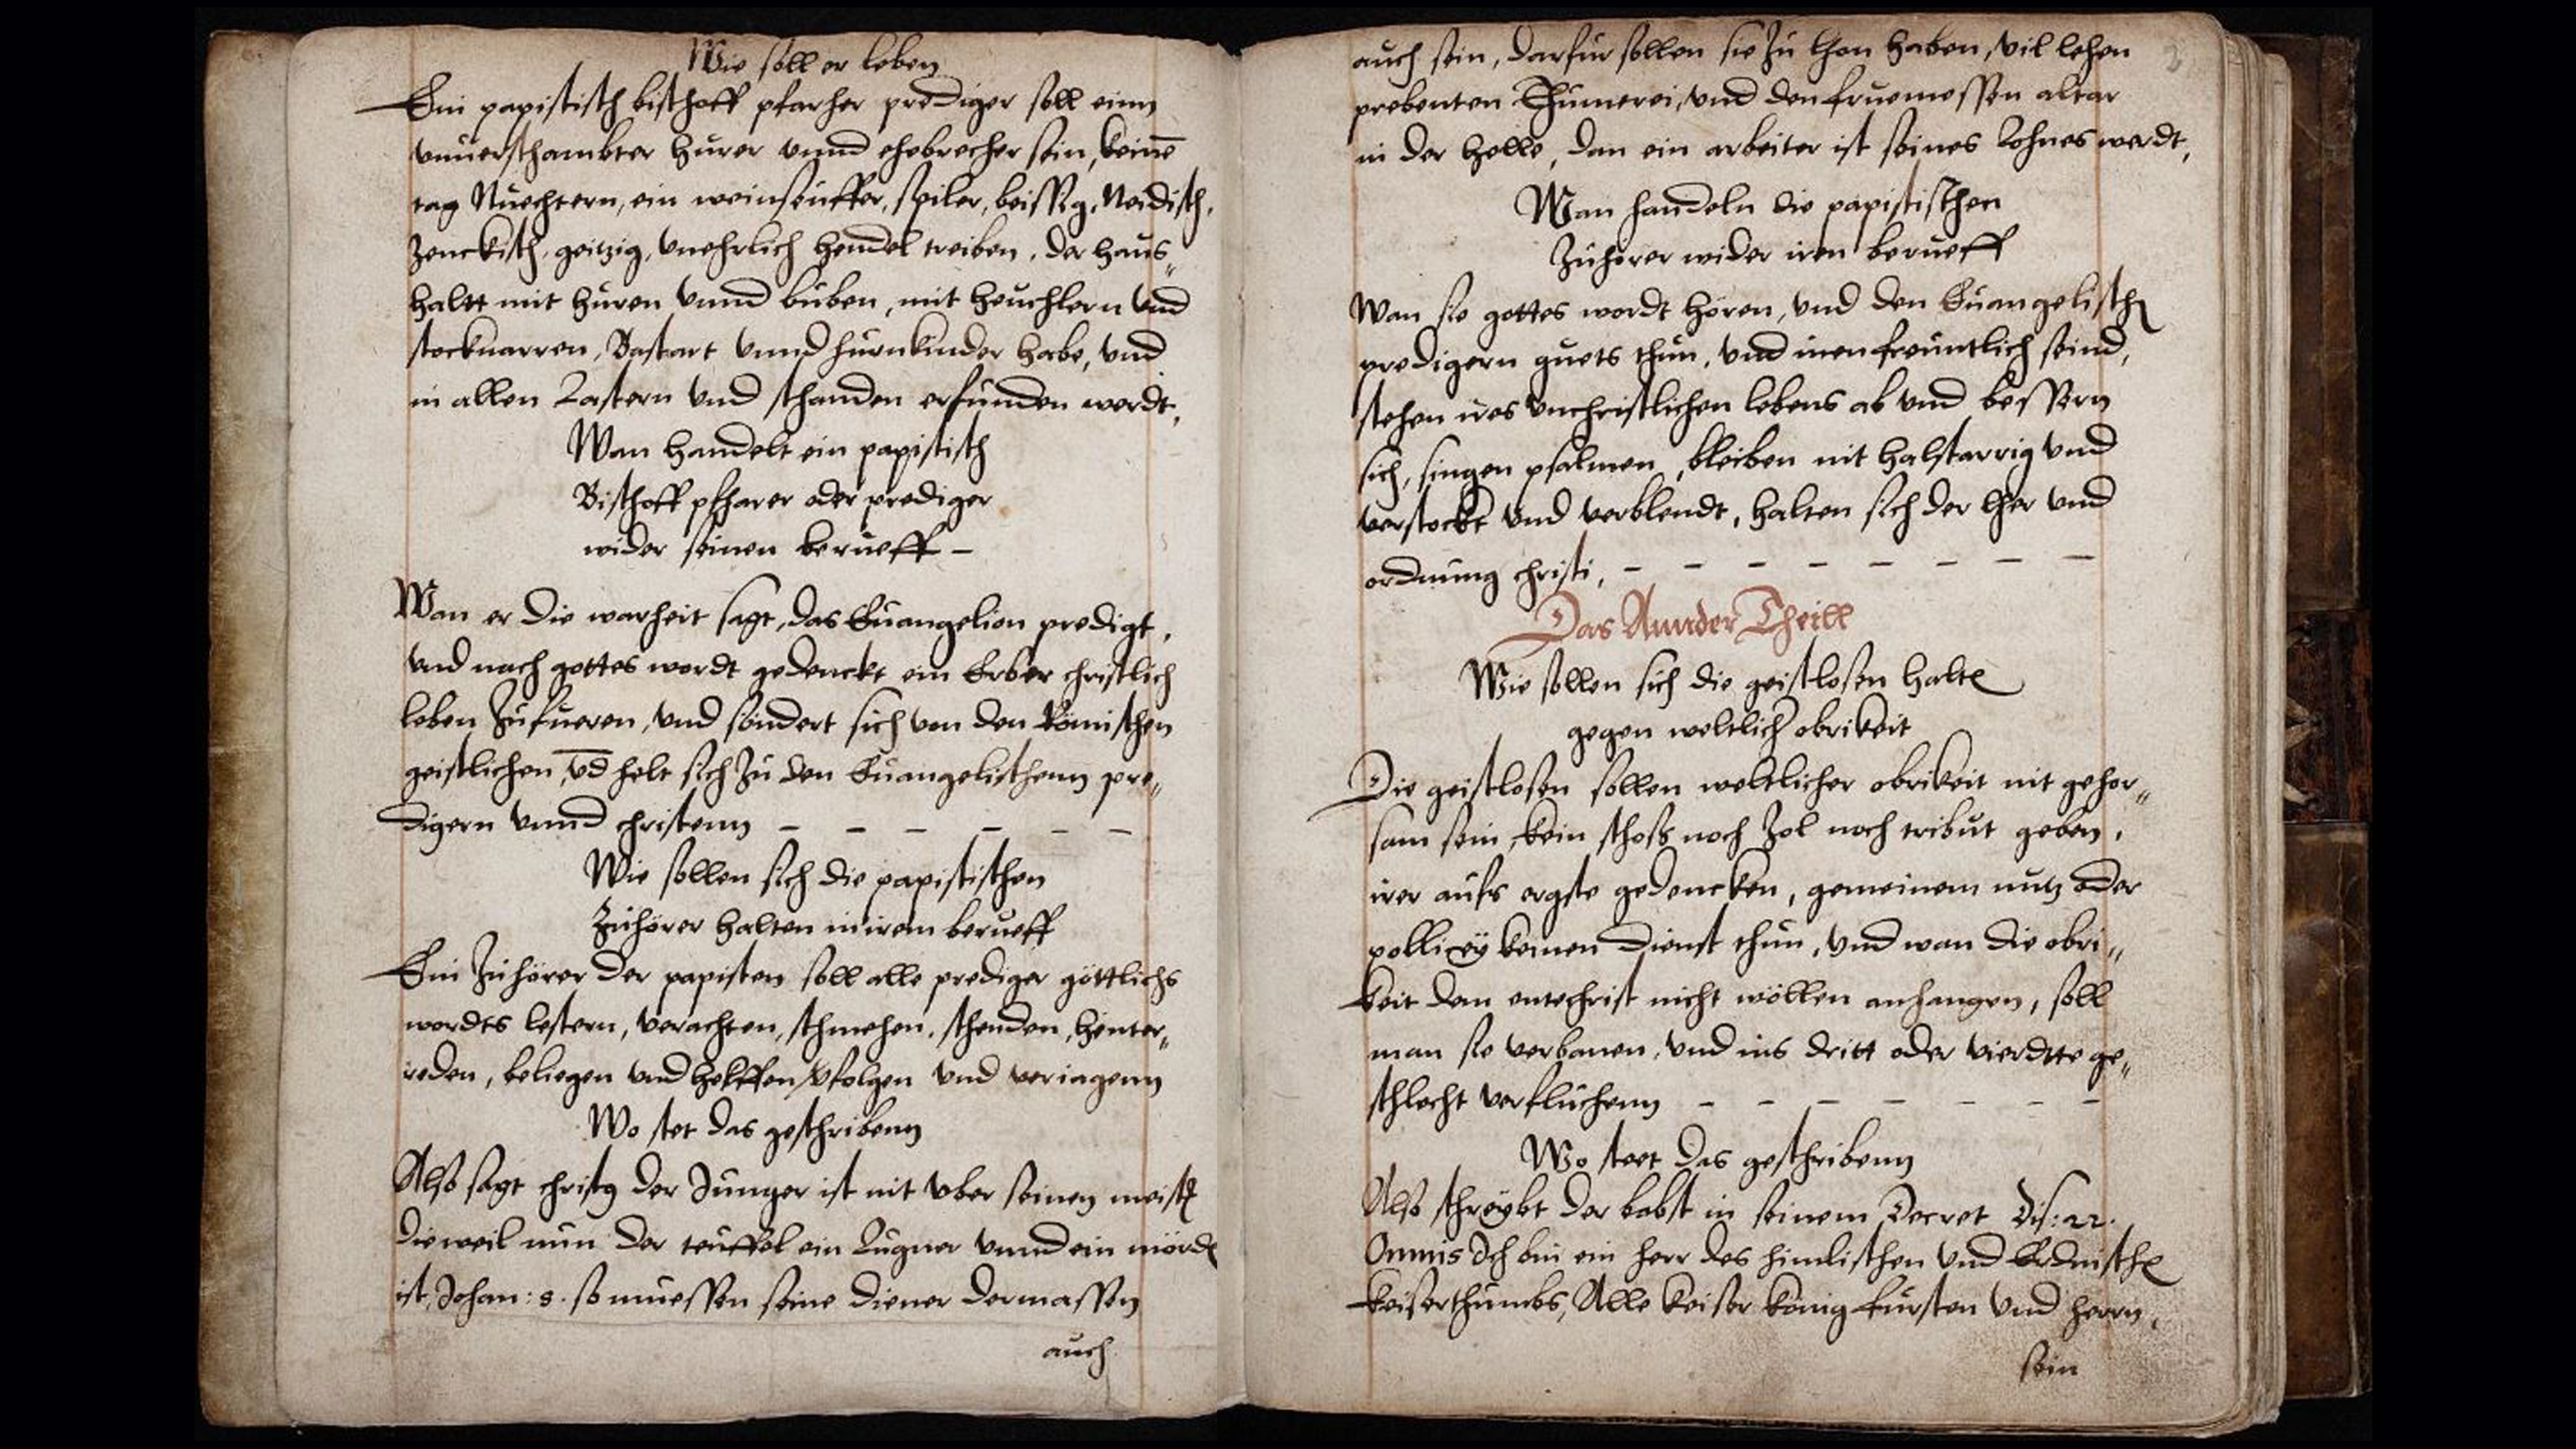 Wie soll er leben
Ein papistisch bischoff pfarher prediger soll einn
vnuerschambter hurer vnnd ehebrecher sein, keinē
tag Nuechtern, ein weinseuffer, spiler, beissig, Neidisch,
Zenckisch, geitzig, vnehrlich hendel treiben, der haus„
haltt mit huren vnnd buben, mit heuchlern vnd
stocknarren, Bastart vnnd hurnkinder habe, vnd
in allen Lastern vnd schanden erfunden werdt,
Wan handelt ein papistisch
Bischoff pfharer oder prediger
wider seinen berueff –
Wan er die warheit sagt, das Euangelion predigt,
vnd nach gottes wordt gedenckt ein Erber christlich
leben Zufueren, vnd söndert sich von den Römischen
geistlichen, vd helt sich Zu den Euangelischenn pre„
digern vnnd christenn – – – – – –
Wie sollen sich die papistischen
Zuhörer halten in irem berueff
Ein Zuhörer der papisten soll alle prediger göttlichs
wordts lestern, verachten, schmehen, schenden, hinter„
reden, beliegen vnd helffen vfolgen vnd veriagenn
Wo stet das geschribenn
Also sagt christ9 der Junger ist nit vber seinen meistɇ
die weil nun der teuffel ein Lugner vnnd ein mördɇ
ist, Johan: 8. so muessen seine diener dermassen
auch
auch sein, darfur sollen sie Zu lhon haben, vil lehen
prebenten Thumerei, vnd den fruemessen altar
in der helle, dan ein arbeiter ist seines Lohnes werdt,
Wan handeln die papistischen
Zuhörer wider iren berueff
Wan sie gottes wordt hören, vnd den Euangelischɇ
predigern guets thun, vnd inen freuntlich seind,
stehen ires vnchristlichen lebens ab vnd bessern
sich, singen psalmen, bleiben nit halstarrig vnd
verstockt vnd verblendt, halten sich der lher vnd
ordnung christi, – – – – – – – –
Das Annder Theill
Wie sollen sich die geistlosen haltɇ
gegen weltlich obrikeit
Die geistlosen sollen weltlicher obrikeit nit gehor„
sam sein, kein schoss noch Zol noch tribut geben,
irer aufs ergste gedencken, gemeinem nutz oder
pollicey keinen dienst thun, vnd wan die obri„
keit dem entechrist nicht wöllen anhangen, soll
man sie verbanen, vnd ins dritt oder vierdtte ge„
schlecht verfluchenn – – – – – – –
Wo stett das geschribenn
Also schreybt der babst in seinem Decret Dis: 22.
Omnis Ich bin ein herr des himlischen vnd Erdnischɇ
keiserthumbs, Alle keiser könig fursten vnd herrn,
sein